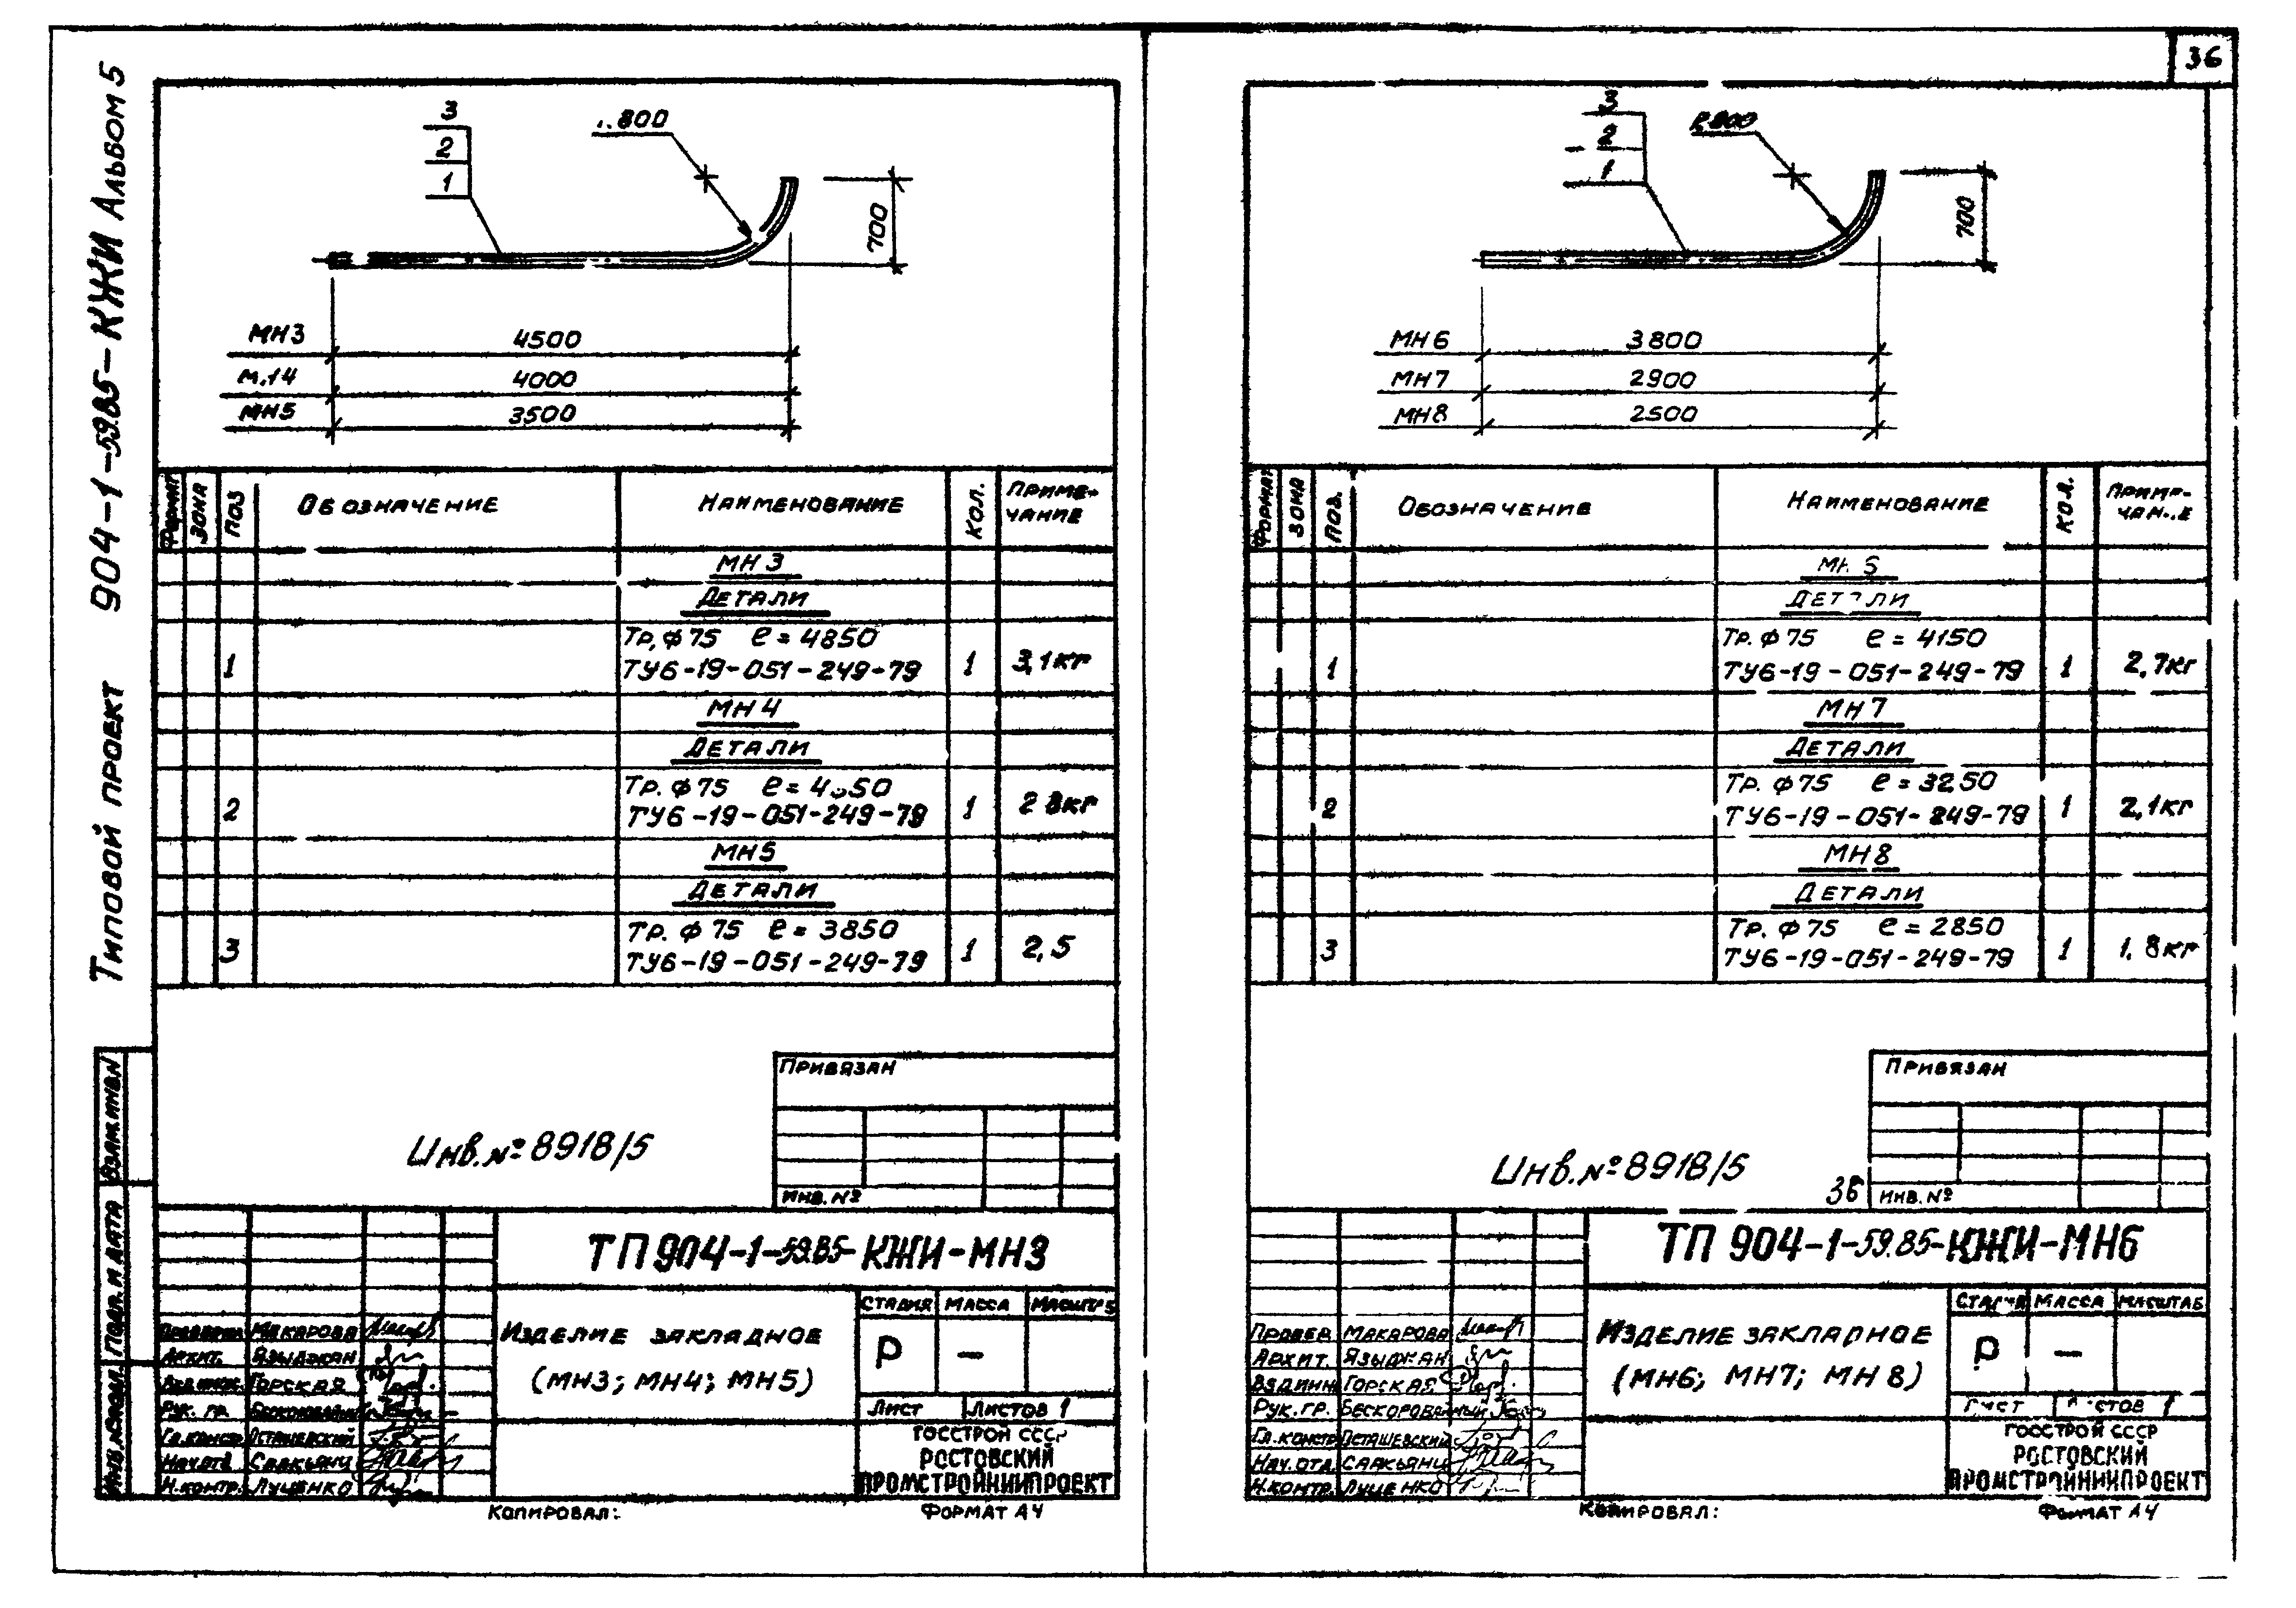 36
Типовой проект 904-1-59.85-КЖИ Альбом 5
3
2
1
800
700
МН3 4500
4000
МН5 3500
Формат Зона Поз Обозначение Наименование Кол. Приме-
чание
МН3
Детали
Тр, ф75 ℓ = 4850
1 ТУ6-19-051-249-79 1 3,1кг
МН4
Детали
Тр. ф75
2 ТУ6-19-051-249-79 1 2 8кг
МН5
Детали
Тр. ф75 ℓ = 3850
3 ТУ6-19-051-249-79 1 2,5
Взам.инв.N
Подп. и дата
Инв.N подл.
Привязан
Инв. №8918/5
Инв. №
ТП 904-1-59.85-КЖИ-МН3
Стадия Масса
Изделие закладное
(МН3; МН4; МН5)
Р –
Лист Листов 1
Госстрой СССР
Ростовский
Промстройниипроект
Макарова
Архит. Языджан
Горская
Рук. гр.
Гл.констр Осташевский
Нач.отд Саакьянц
Н.контр. Луценко
Копировал:
Формат А4
3
2
1
R 800
700
МН6 3800
МН7 2900
МН8 2500
Формат Зона Поз. Обозначение Наименование Кол.
Детали
Тр. ф75 ℓ = 4150
1 ТУ6-19-051-249-79 1 2,7кг
МН7
Детали
Тр. ф75 ℓ = 3250
2 ТУ6-19-051-249-79 1 2,1кг
МН8
Детали
Тр. ф75 ℓ = 2850
3 ТУ6-19-051-249-79 1 1,8кг
Привязан
Инв. №8918/5
36 Инв. №
ТП 904-1-59.85-КЖИ-МН6
Масса Масштаб
Изделие закладное
(МН6; МН7; МН8)
Р –
1
Госстрой СССР
Ростовский
Промстройниипроект
Провер. Макарова
Архит. Языджан
Вед.инж Горская
Рук.гр. Бескоровайный
Гл.констр Осташевский
Нач.отд. Саакьянц
Н.контр. Луценко
Копировал:
Формат А4